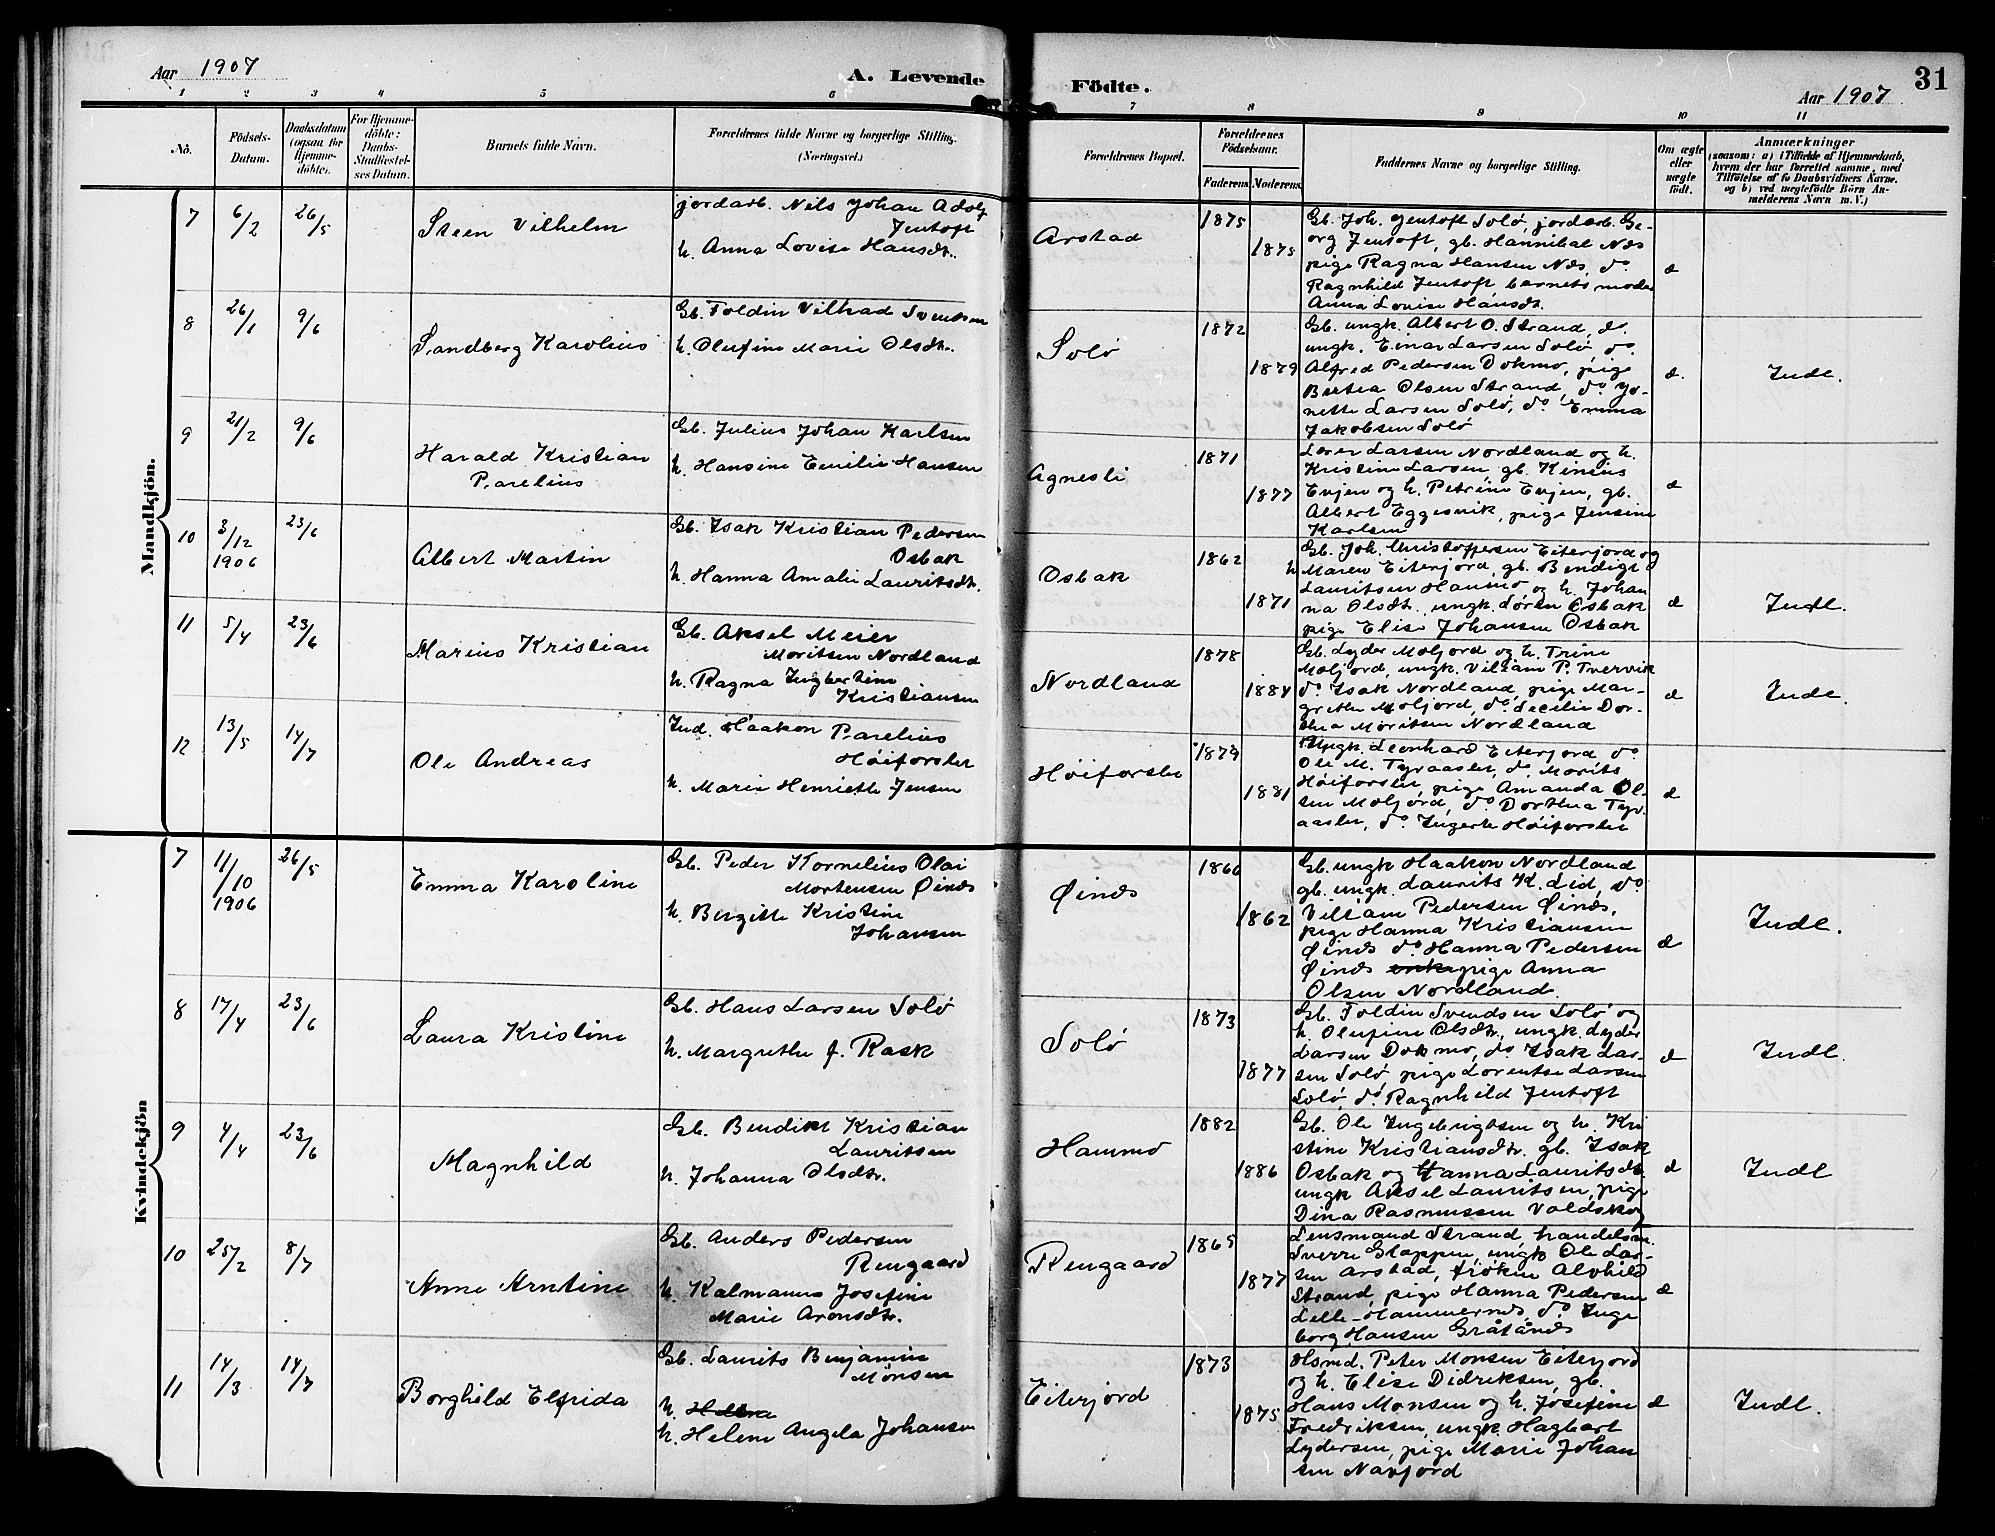 Aar 1907
A. Levende
Födte.
31
Aar 1907
1 2 3 4 5 6 7 8 9 10 11
No.
Födsels-
Datum.
Daabsdatum
(ogsaa for
Hjemme-
döbte).
For Hjemme-
döbte:
Daabs-
Stadfæstel-
ses Datum.
Barnets fulde Navn.
Forældrenes fulde Navne og borgerlige Stilling.
(Næringsvei.)
Forældrenes Bopæl.
Forældrenes
Födselsaar.
Faderens
Moderens
Faddernes Navne og borgerlige Stilling.
Om ægte
eller
uægte
født.
Anmærkninger
(saasom: a) i Tilfælde af Hjemmedaab,
hvem der har forrettet samme, med
Tilföielse af to Daabsvidners Navne,
og b) ved uægtefödte Börn An-
melderens Navn m.V.)
Mandkjön.
7
6/2
26/5
Steen Vilhelm
jordarb. Nils Johan Adolf
Jentoft
h. Anna Lovise Hansdr.
Arstad
1875
1875
Gb. Joh. Jentoft Solö, jordarb. Ge-
org Jentoft, gb. Hannibal Næs
pige Ragna Hansen Næs, do
Ragnhild Jentoft, barnets moder
Anna Lovise Hansdr.
æ
8
26/1
9/6
Sandberg Karolius
Gb. Foldin Vilhad Svendsen
h. Olufine Marie Olsdr.
Solö
1872
1879
Gb. ungk. Albert O. Strand, do.
ungk. Einar Larsen Solö do.
Alfred Pedersen Dokmo, pige
Bertea Olsen Strand, do Jo-
nette Larsen Solö, do. Emma
Jakobsen Solö
æ.
Indl.
9
21/2
9/6
Harald Kristian
Parelius
Gb. Julius Johan Karlsen
h. Hansine Emilie Hansen
Agnesli
1871
1877
Larsen Nordland og h.
Kristine Larsen, gb. Kinius
Evjen og h. Petrine Evjen, gb.
Albert Eggesvik, pige Jensine
Karlsen
æ
10
3/12
1906
23/6
Albert Martin
Gb. Isak Kristian Pedersen
Osbak
h. Hanna Amalie Lauritsdr.
Osbak
1862
1871
Gb. Joh. Christoffersen Eiterjord og
h Maren Eiterjord, gb. Bendigt
Lauritsen Hammo og h. Johan
na Olsdr. ungk. Sören Osbak
pige Elise Johansen Osbak
æ
Indl.
11
5/4
23/6
Marius Kristian
Gb. Aksel Meier
Moritsen Nordland
h. Ragna Ingbertine
Kristiansen
Nordland
1878
1884
Gb. Lyder Moljord og h. Trine
Moljord, ungk. Viliam P. Tvervik
do. Isak Nordland, pige Mar-
grethe Moljord, do. Cecilie Dor-
thea Moritsen Nordland
æ
Indl.
12
13/5
14/7
Ole Andreas
Ind. Haakon Parelius
Höiforslet
h. Marie Henriette Jensen
Höiforslet
1879
1881
Ungk. Leonhard Eiterjord do
Ole M. Tyvaaslet, do. Morits
Höiforslet, pige Amanda Ol-
sen Moljord, do. Dorthea Tyv-
aaslet, do. Ingerte Höiforslet
æ
Kvindekjön
7
11/10
1906
26/5
Emma Karoline
Gb. Peder Kornelius Olai
Mortensen Öinæs
h. Birgitte Kristine
Johansen
Öinæs
1860
1862
Gb. ungk Haakon Nordland
gb. ungk. Laurits K. Lid, do.
Viliam Pedersen Öinæs,
pige Hanna Kristiansen
Öinæs do. Hanna Pedersen
Öinæs enke pige Anna
Olsen Nordland
æ
Indl.
8
17/4
23/6
Laura Kristine
Gb. Hans Larsen Solö
h. Margrethe f. Rask
Solö
1873
1877
Gb. Foldin Svendsen Solö og
h. Olufine Olsdr., ungk. Lyder
Larsen Dokmo, do Isak Lar-
sen Solö pige Lorentse Larsen
Solö, do. Ragnhild Jentoft
æ
Indl.
9
4/4
23/6
Magnhild
Gb. Bendikt Kristian
Lauritsen
h. Johanna Olsdr.
Hammo
1882
1886
Gb. Ole Ingebrigtsen og h. Kri
stine Kristiansdr. gb. Isak
Osbak og Hanna Lauritsdr.
ungk Aksel Lauritsen, pige
Dina Rasmussen Voldskog
æ
Indl
10
25/2
8/7
Anne Arntine
Gb. Anders Pedersen
Rengaard
h. Kalmanna Josefine
Marie Aronsdr.
Rengaard
1865
1877
Lensmand Strand, handelsm.
Sverre Glappen, ungk Ole Lar-
sen Arstad, fröken Alvhild
Strand, pige Hanna Pedersen
Lille-Hammernæs, do. Inge
borg Hansen Gråtånæs
æ
11
14/3
14/7
Borghild Elfrida
Gb. Laurits Benjamin
Monsen
h. Helene
h. Helene Angela Johansen
Eiterjord
1873
1875
Hsmd. Peter Monsen Eiterjord
og h. Elise Didriksen, gb.
Hans Monsen og h. Josefine
Fredriksen, ungk Hagbart
Lydersen, pige Marie Johan
sen Navjord
æ
Indl.